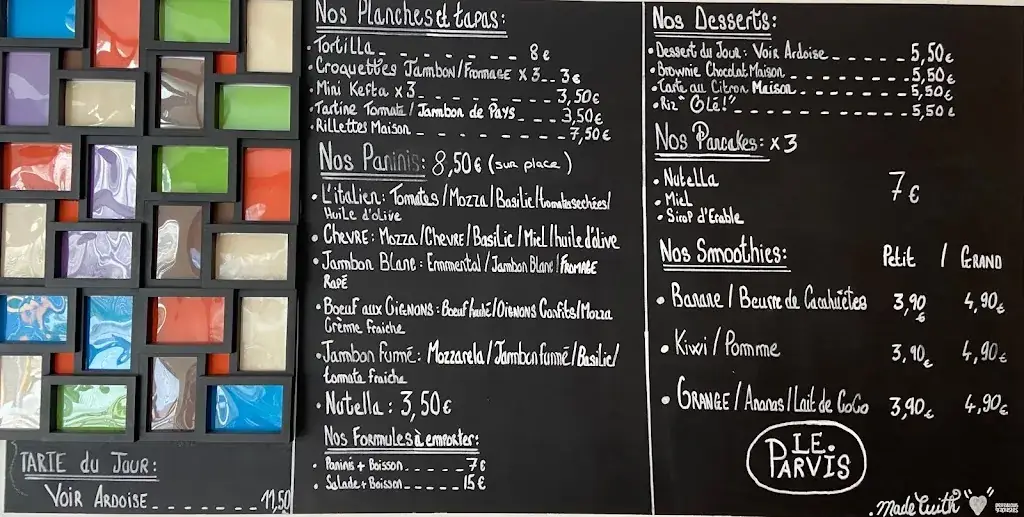 TARTE du Jour:
Voir Ardoise _ _ _ _ _ _ _ 11,50
Nos Planches et tapas:
• Tortilla _ _ _ _ _ _ _ _ 8€
• Croquettes Jambon/Fromage x3 _ _ 3€
• Mini Kefta x3 _ _ _ _ _ _ _ 3,50€
• Tartine Tomate / Jambon de Pays _ _ _ 3,50€
• Rillettes Maison _ _ _ _ _ _ _ _ 7,50€
Nos Paninis: 8,50€ (sur place)
• L'italien: Tomates/Mozza/Basilic/tomates sechées/
Huile d'olive
• CHEVRE: Mozza/Chevre/Basilic/Miel/huile d'olive
• Jambon Blanc: Emmental/Jambon Blanc/FROMAGE
RAPÉ
• Boeuf aux OIGNONS: Boeuf haché/OIGNONS Confits/Mozza
Crème fraiche
• Jambon fumé: Mozzarela/Jambon fumé/Basilic/
tomate fraiche
• Nutella: 3,50€
Nos Formules à emporter:
• Paninis + Boisson _ _ _ _ _ 7€
• Salade + Boisson _ _ _ _ _ 15€
Nos Desserts:
• Dessert du Jour: Voir Ardoise _ _ _ _ _ 5,50€
• Brownie Chocolat Maison _ _ _ _ _ _ _ 5,50€
• Tarte au Citron Maison _ _ _ _ _ _ _ 5,50€
• Riz "Olé!" _ _ _ _ _ _ _ _ _ _ 5,50€
Nos Pancakes: x3
• Nutella
• Miel 7€
• Sirop d'Erable
Nos Smoothies: Petit / GRAND
• Banane / Beurre de Cacahuètes 3,90€ 4,90€
• Kiwi / Pomme 3,90€ 4,90€
• ORANGE / Ananas / Lait de CoCo 3,90€ 4,90€
LE
PARVIS
. Made With " "